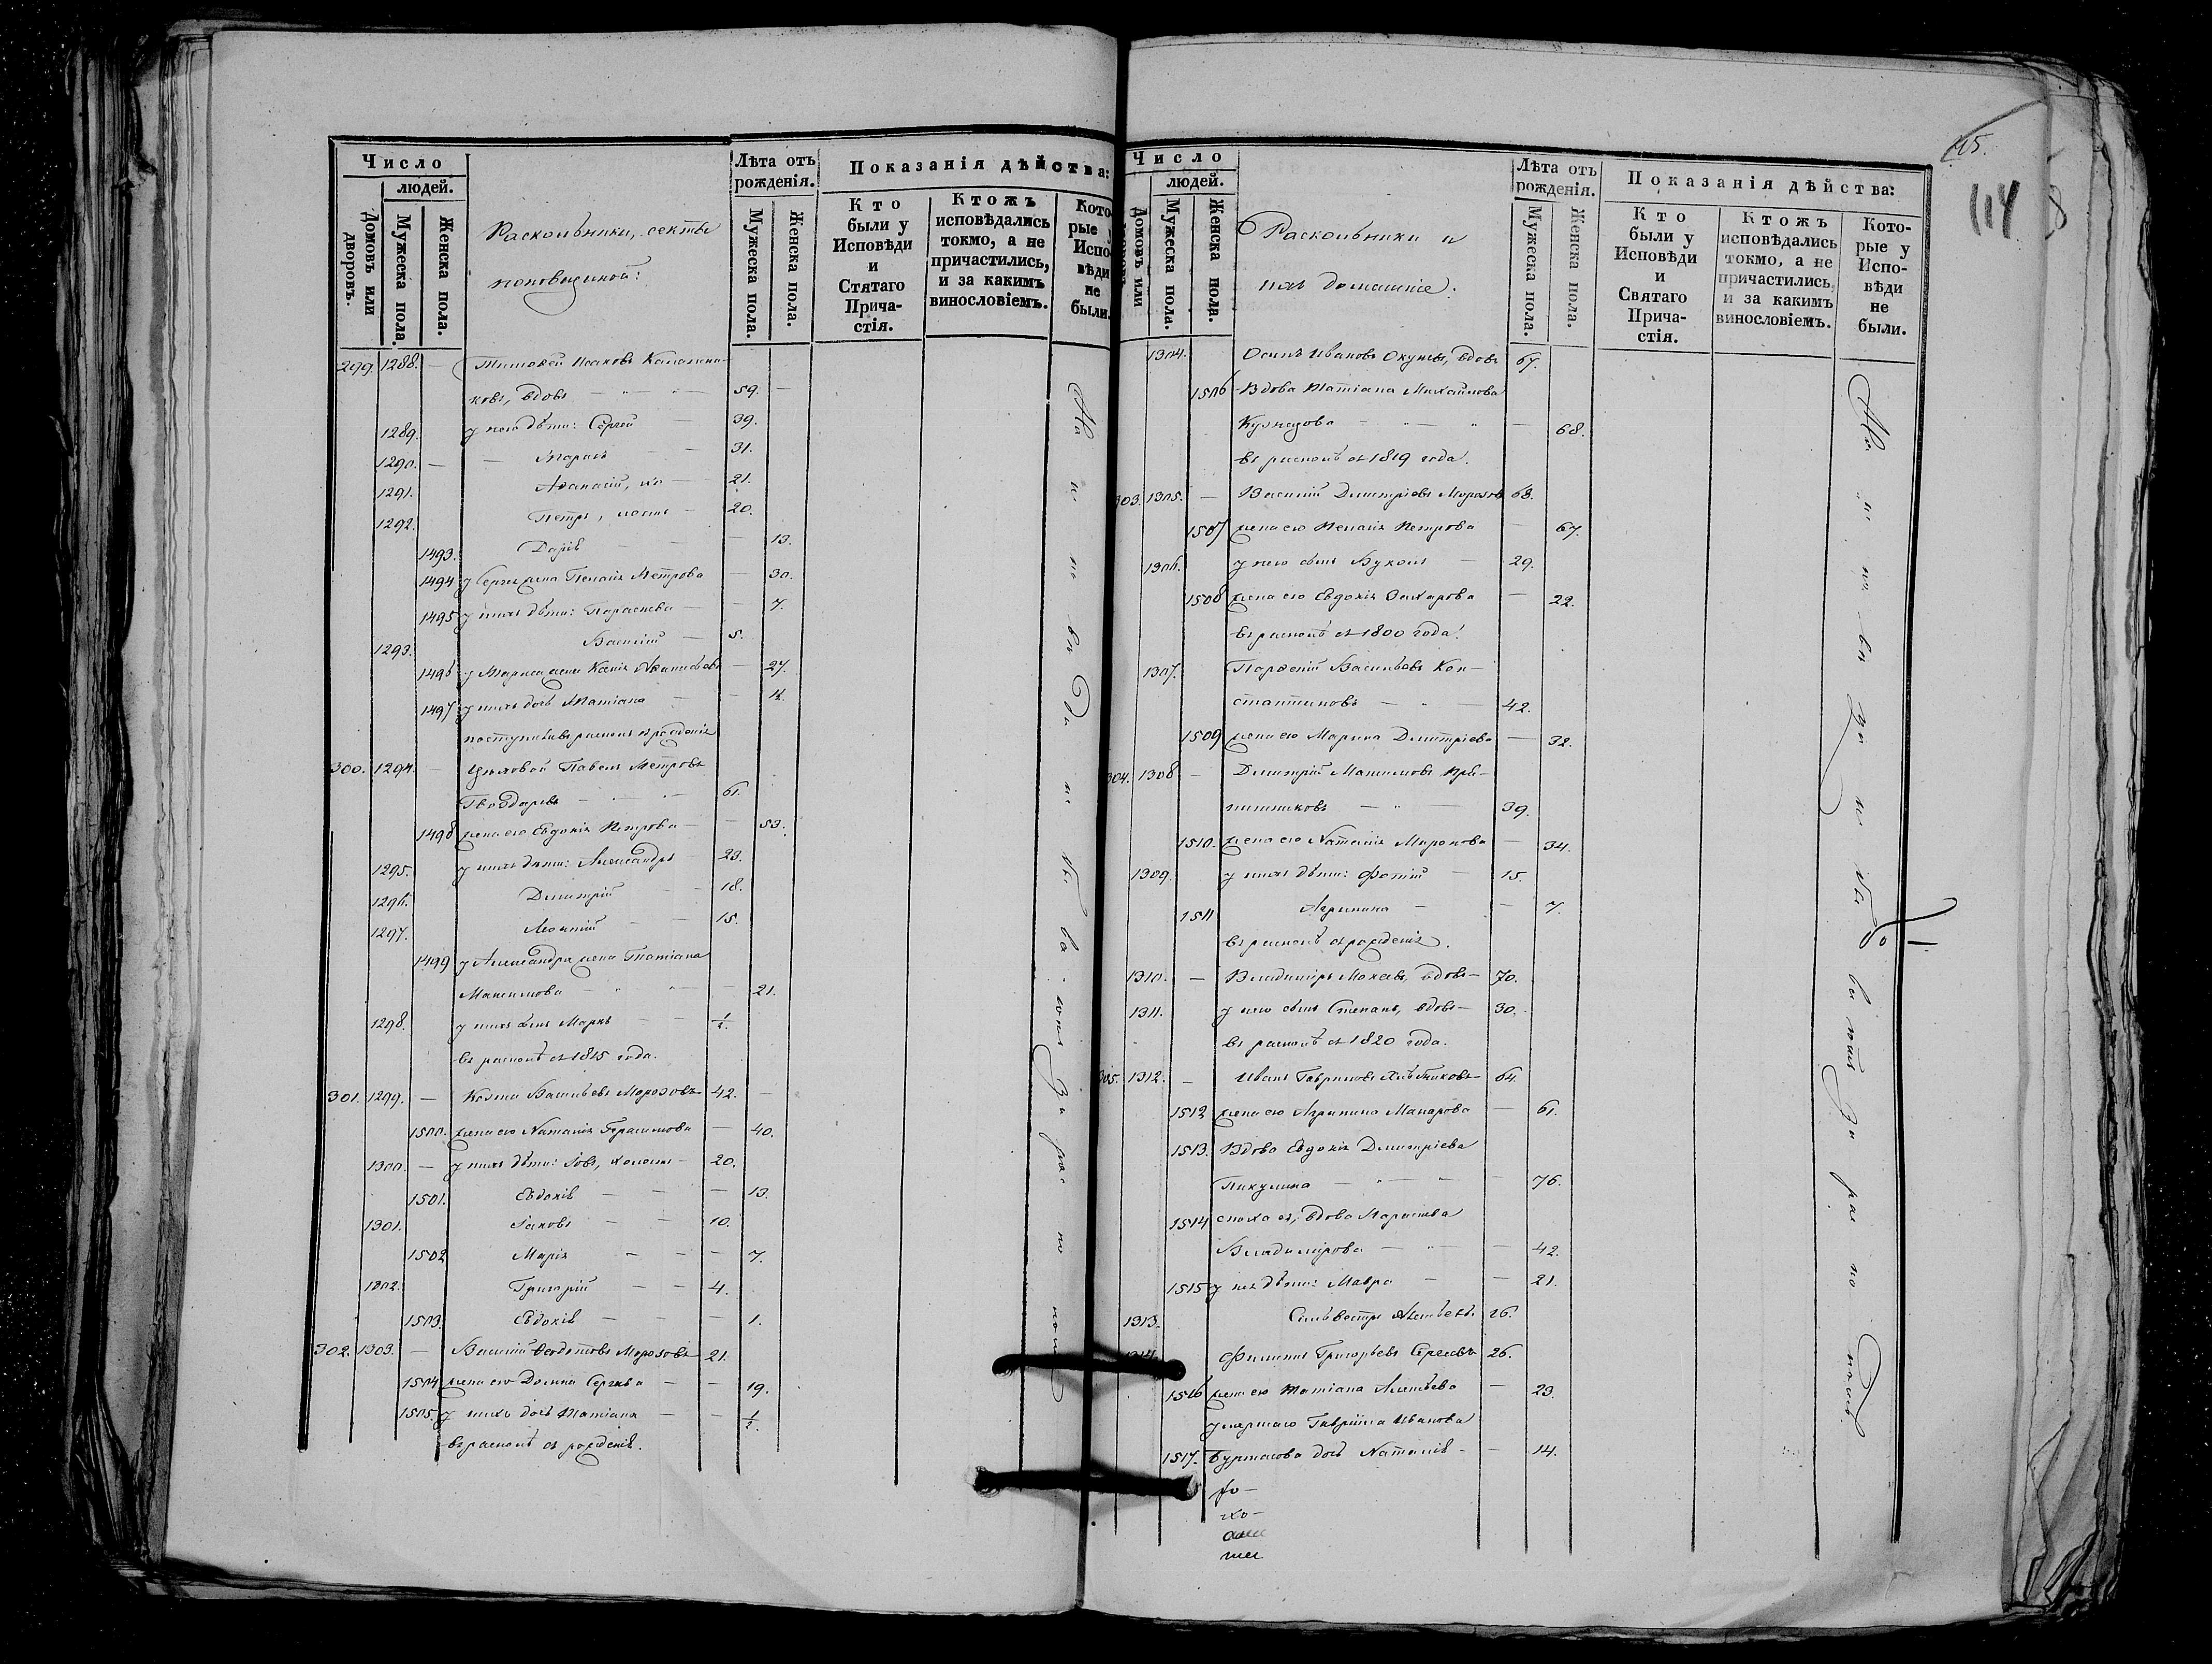 Число
людей.
Домовъ или дворовъ.
Мужеска пола.
Женска пола.
Раскольники, секты
поповщиной:
Лѣта отъ
рожденія.
Мужеска пола.
Женска пола.
Показанія дѣйства:
Кто
были у
Исповѣди
и
Святаго
Прича-
стія.
Ктожъ
исповѣдались
токмо, а не
причастились,
и за какимъ
винословіемъ.
Кото-
рые у
Испо-
вѣди
не
были.
299. 1288. —
ковъ, вдовъ — 59. —
1289. у него дѣти: Сергей — 39.
1290. — 31.
1291. Аѳанасій, — 21.
1292. Петръ, — 20.
1493. Дарія — 13.
1494 у Сергея жена Пелагія Петрова — 30.
1495 у нихъ дѣти: Парасковія — 7.
1293. Василій — 5.
1496 — 27.
1497 у нихъ дочь Татіана —
300. 1294. — Цеховой Павелъ Петровъ
Гвоздаревъ — 61.
1498 жена его Евдокія Петрова — 53.
1295. у нихъ дѣти: Александръ 23.
1296. Димитрій — 18.
1297. Леонтій — 15.
1499 у Александра жена Татіана
Максимова — 21.
1298. у нихъ сынъ Маркъ — ½.
въ расколѣ съ 1815 года.
301. 1299. — Козма Васильевъ Морозовъ 42. —
1500. жена его Наталія Герасимова — 40.
1300. — у нихъ дѣти: Іовъ, холостъ — 20.
1501. Евдокія — 13.
1301. Іаковъ — 10.
1502 Марія — 7.
1302. Григорій — 4.
1503. Евдокія — 1.
302. 1303. — Василій Ѳедотовъ Морозовъ 21.
1504 жена его Домна Сергѣева — 19.
1505. у нихъ дочь Татіана — ½.
въ расколѣ съ рожденія.
Число
людей.
Домовъ или
Мужеска пола.
Женска пола.
Раскольники и
ихъ домашніе:
Лѣта отъ
рожденія.
Мужеска пола.
Женска пола.
Показанія дѣйства:
Кто
были у
Исповѣди
и
Святаго
Прича-
стія.
Ктожъ
исповѣдались
токмо, а не
причастились,
и за какимъ
винословіемъ.
Кото-
рые у
Испо-
вѣди
не
были.
115.
114
1304. Осипъ Ивановъ Окуневъ, вдовъ 67.
1506 Вдова Татіана Михайлова
Кузнецова — 68.
въ расколѣ съ 1819 года.
303. 1305. — Василій Димитріевъ Морозовъ 68.
1507 жена его Пелагія Петрова — 67.
1306. у него сынъ Вуколъ — 29.
1508 жена его Евдокія Захарова — 22.
въ расколѣ съ 1800 года.
1307. Парѳеній Васильевъ Кон-
стантиновъ — 42.
1509 жена его Марина Димитріева — 32.
304. 1308 — Димитрій Максимовъ
— 39.
1510. жена его Наталія Миронова — 34.
1309. у нихъ дѣти: Фотій — 15.
1511 Агрипина — 7.
въ расколѣ съ рожденія.
1310. — Владимиръ Мокеевъ, вдовъ — 70.
1311. у него сынъ Степанъ, вдовъ — 30.
въ расколѣ съ 1820 года.
305. 1312. — Иванъ Гавриловъ Хлѣбниковъ — 64.
1512 жена его Агрипина Макарова — 61.
1513. Вдова Евдокія Димитріева
Пикулина — 76.
1514 сноха ея, вдова Параскева
Владимірова — 42.
1515 у нея дѣти: Мавра — 21.
1313. Сильвестръ 26.
1314. Филиппъ Григорьевъ 26.
1516 жена его Татіана — 23.
умершаго Гавріила Иванова
1517. дочь Наталія — 14.